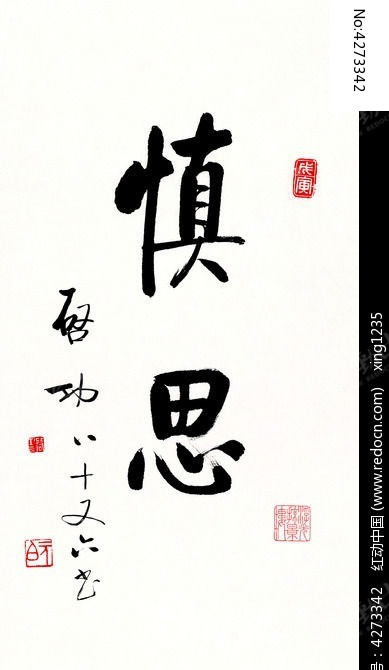 慎思
启功八十又六书
戊寅
No:4273342
红动中国 (www.redocn.com) xing1235
号：4273342